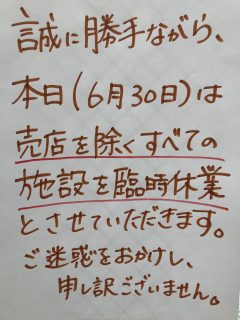 誠に勝手ながら、
本日(6月30日)は
売店を除くすべての
施設を臨時休業
とさせていただきます。
ご迷惑をおかけし、
申し訳ございません。